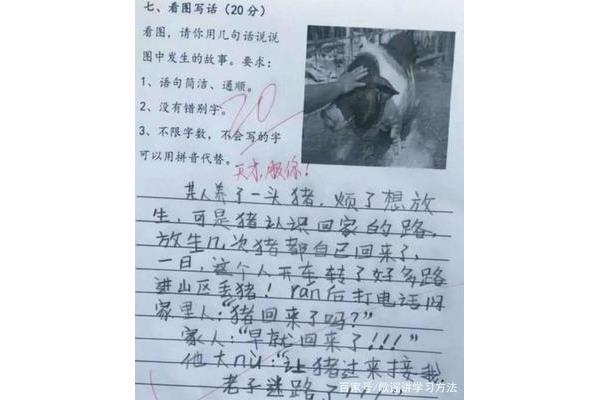 七、看图写话（20分）
看图，请你用几句话说说
图中发生的故事。要求：
1、语句简洁、通顺。
2、没有错别字。
3、不限字数，不会写的字
可以用拼音代替。
20
天才，服你！
某人养了一头猪，烦了想放
生，可是猪认识回家的路，
放生几次猪都自己回来了，
一日，这个人开车转了好多路
进山区丢猪！ran后打电话问
家里人："猪回来了吗？"
家人："早就回来了!!!"
他大nu："让猪过来接我，
老子迷路了
百家号/微阔讲学习方法